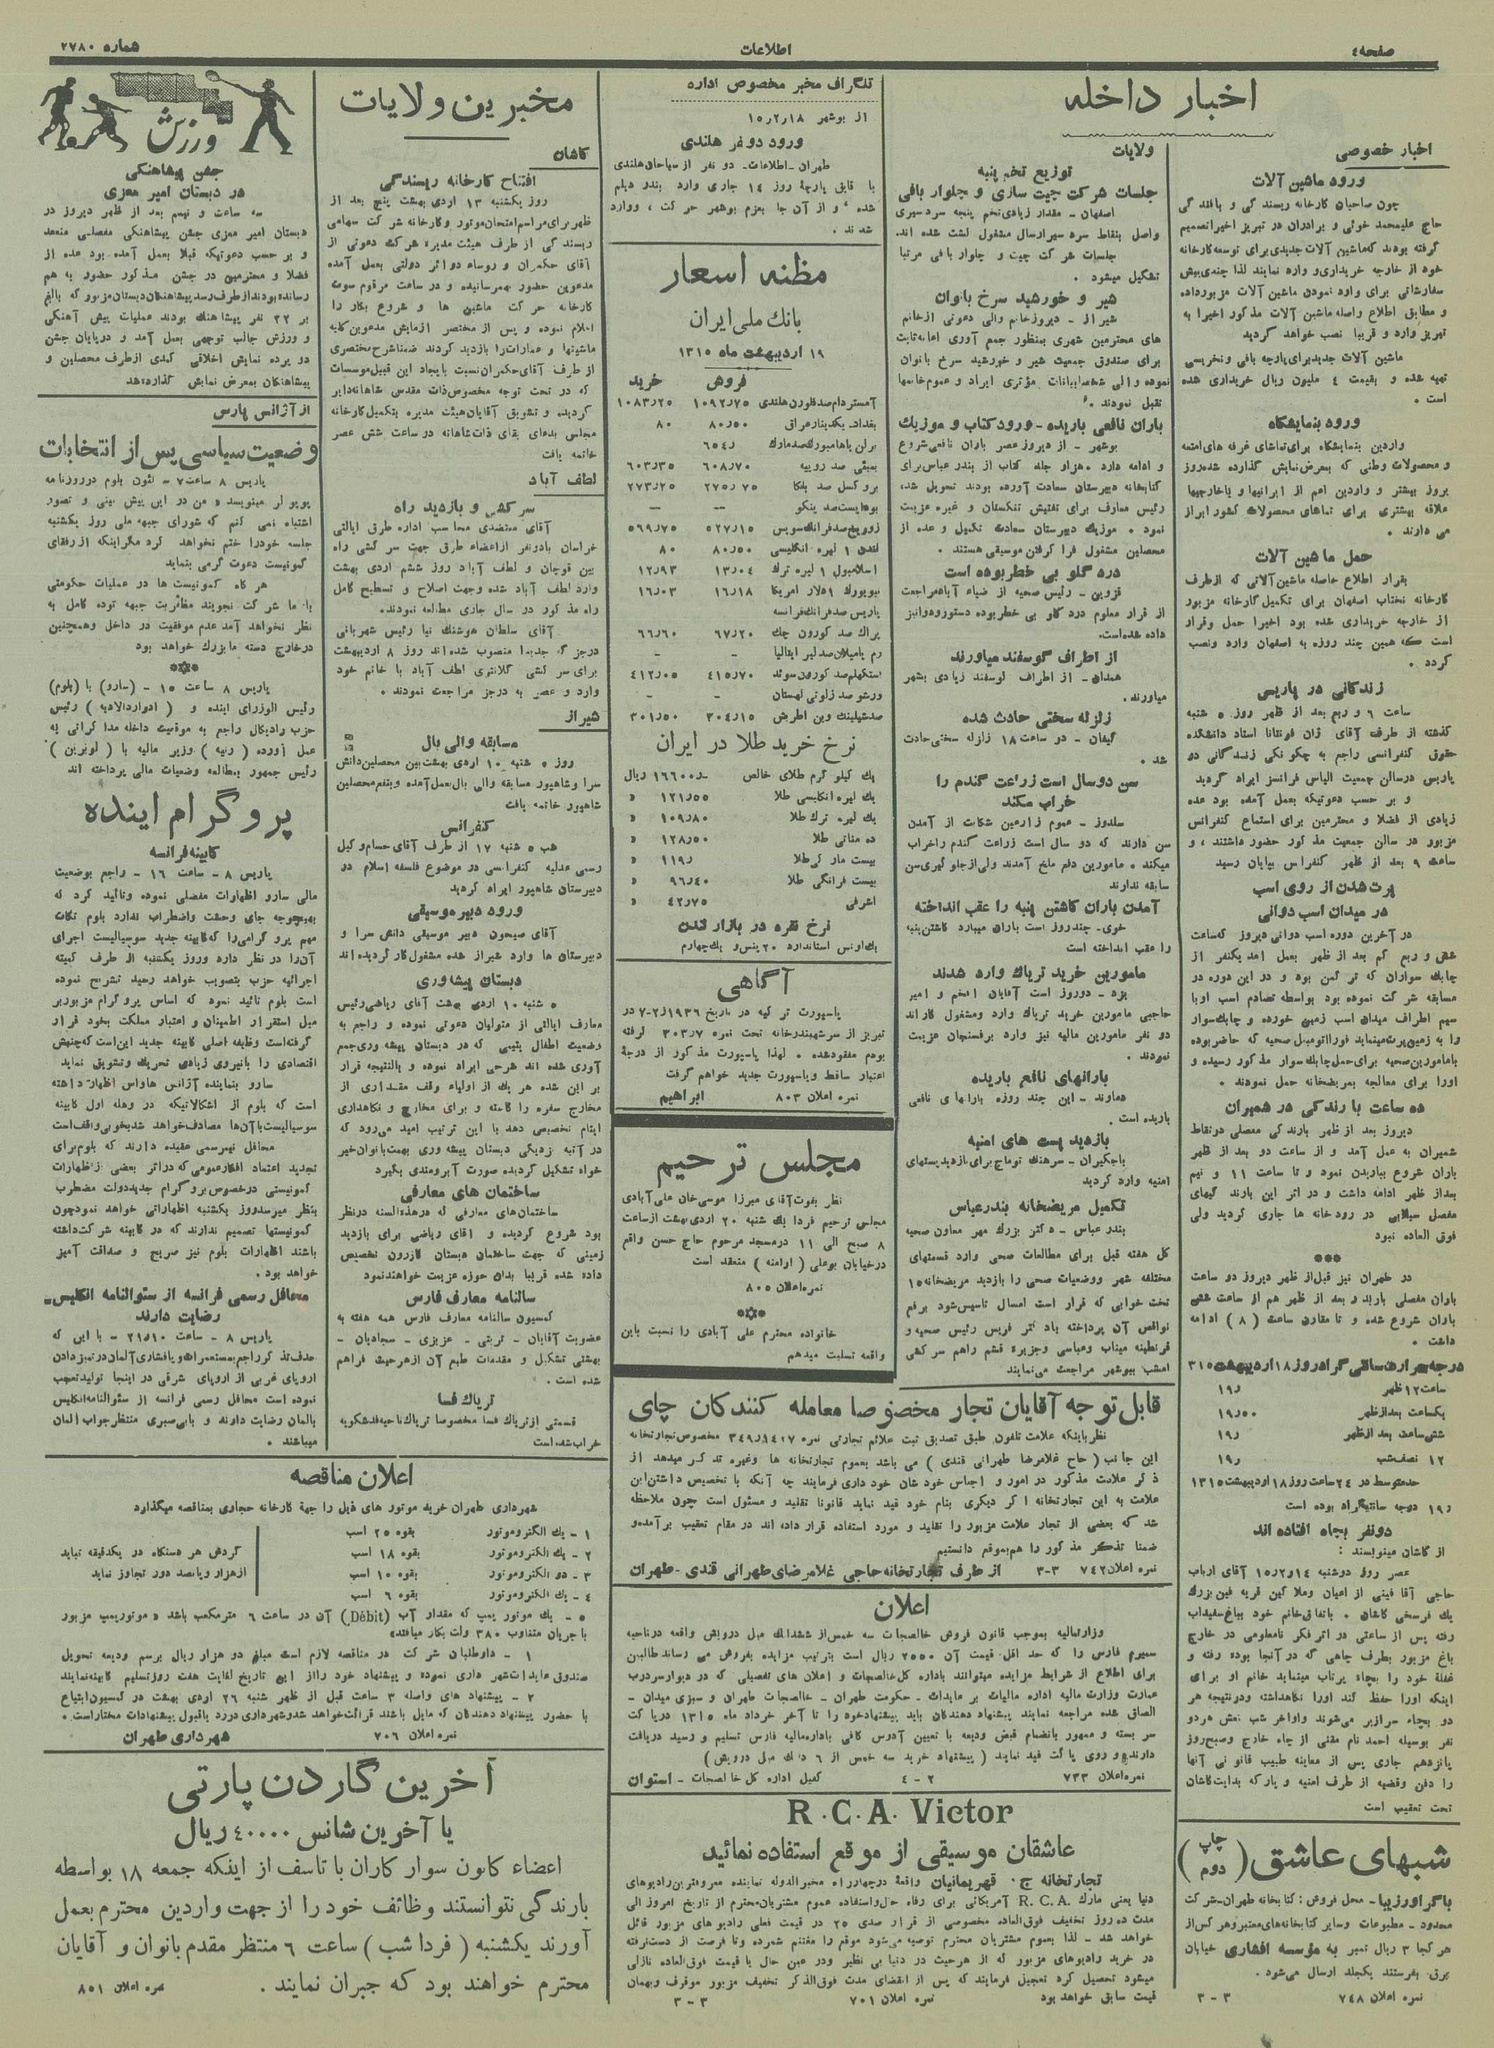 صفحه٤
اطلاعات
شماره ٢٧٨٠
اخبار داخله
اخبار خصوصی
ورود ماشین آلات
چون صاحبان کارخانه ریسندگی و بافندگی
حاج علیمحمد خوئی و برادران در تبریز اخیراتصمیم
گرفته بودند که ماشین آلات جدیدی برای توسعه کارخانه
خود از خارجه خریداری و وارد نمایند لذا چندی پیش
سفارشاتی برای وارد نمودن ماشین آلات مزبور داده
و مطابق اطلاع واصله ماشین آلات مذکور اخیرا به
تبریز وارد و قریبا نصب خواهد گردید
ماشین آلات جدید برای پارچه بافی و نخریسی
تهیه شده و بقیمت ٤ ملیون ریال خریداری شده
است .
ورود بنمایشگاه
واردین بنمایشگاه برای تماشای غرفه های امتعه
و محصولات وطنی که بمعرض نمایش گذارده شده روز
بروز بیشتر و واردین اعم از ایرانیها و یا خارجیها
علاقه بیشتری برای تماشای محصولات کشور ابراز
می دارند .
حمل ماشین آلات
بقرار اطلاع حاصله ماشین آلاتی که از طرف
کارخانه نختاب اصفهان برای تکمیل کارخانه مزبور
از خارجه خریداری شده بود اخیرا حمل و قرار
است که همین چند روزه به اصفهان وارد و نصب
گردد .
زندگانی در پاریس
ساعت ٦ و ربع بعد از ظهر روز ٥ شنبه
گذشته از طرف آقای ژان فونتانا استاد دانشکده
حقوق کنفرانسی راجع به چگونگی زندگانی در
پاریس در سالن جمعیت الیانس فرانسز ایراد گردید
و بر حسب دعوتیکه بعمل آمده بود عده
زیادی از فضلا و محترمین برای استماع کنفرانس
مزبور در سالن جمعیت مذکور حضور داشتند ، و
ساعت ٩ بعد از ظهر کنفراس بپایان رسید
پرت شدن از روی اسب
در میدان اسب دوانی
در آخرین دوره اسب دوانی دیروز که ساعت
شش و ربع کم بعد از ظهر بعمل آمد یکنفر از
چابک سواران که ترکمن بود و در این دوره در
مسابقه شرکت نموده بود بواسطه تصادم اسب او با
سیم اطراف میدان اسب زمین خورده و چابک سوار
را به زمین پرت مینماید فورا اتومبیل صحیه که حاضر بوده
با مامورین صحیه برای حمل چابک سوار مذکور رسیده و
اورا برای معالجه بمریضخانه حمل نمودند .
ده ساعت بارندگی در شمیران
دیروز بعد از ظهر بارندگی مفصلی در نقاط
شمیران به عمل آمد و از ساعت دو بعد از ظهر
باران شروع بباریدن نمود و تا ساعت ١١ و نیم
بعد از ظهر ادامه داشت و در اثر این بارندگیهای
مفصل سیلابی در رودخانه ها جاری گردید ولی
فوق العاده نبود
***
در طهران نیز قبل از ظهر دیروز دو ساعت
باران مفصلی بارید و بعد از ظهر هم از ساعت شش
باران شروع شده و تا مقارن ساعت (٨) ادامه
داشت .
درجه حرارت سانتی گراد روز ١٨ اردیبهشت ٣١٥
ساعت ١٢ ظهر ١٩ر
یکساعت بعد از ظهر ١٩ر٥٠
شش ساعت بعد از ظهر ١٩ر
١٢ نصف شب ١٩ر
حد متوسط در ٢٤ ساعت روز ١٨ اردیبهشت ١٣١٥
١٩ر درجه سانتیگراد بوده است
دونفر بچاه افتاده اند
از کاشان مینویسند :
عصر روز دوشنبه ١٤ر٢ر١٥ آقای ارباب
حاجی آقا فینی از اعیان و ملاکین قریه فین بزرگ
یک فرسخی کاشان . باتفاق خانم خود بباغ سفیداب
رفته پس از ساعتی در اثر فکر نامعلومی در خارج
باغ مزبور بطرف چاهی که در آنجا بوده رفته و
غفلة خود را بچاه پرتاب مینماید خانم او برای
اینکه اورا حفظ کند اورا نگاهداشته و در نتیجه هر
دو بچاه سرازیر می‌شوند و اواخر شب نعش هر دو
نفر بوسیله احمد نام مقنی از چاه خارج و صبح روز
پانزدهم جاری پس از معاینه طبیب قانونی آنها
را دفن و قضیه از طرف امنیه و پارکه بدایت کاشان
تحت تعقیب است
شبهای عاشق (چاپ دوم)
باگراورزیبا - محل فروش : کتابخانه طهران - شرکت
محدود - مطبوعات و سایر کتابخانه های معتبر و هر کس از
هر کجا ٣ ریال تمبر به مؤسسه افشاری خیابان
برق بفرستند یکجلد ارسال می‌شود .
نمره اعلان ٧٤٨ ٣-٣
ولایات
توزیع تخم پنبه
جلسات شرکت چیت سازی و چلوار بافی
اصفهان - مقدار زیادی تخم پنبه سردسیری
واصل بنقاط سردسیر ارسال مشغول کشت شده اند.
جلسات شرکت چیت و چلوار بافی مرتبا
تشکیل میشود .
شیر و خورشید سرخ بانوان
شیراز - دیروز خانم والی دعوتی از خانم
های محترمین شهری بمنظور جمع آوری اعانه ثابت
برای صندوق جمعیت شیر و خورشید سرخ بانوان
نموده والی شخصا بیانات مؤثری ایراد و عموم خانمها
تقبل نمودند .
باران نافعی باریده - ورود کتاب و موزیک
بوشهر - از دیروز عصر باران نافعی شروع
و ادامه دارد . هزار جلد کتاب از بندر عباس برای
کتابخانه دبیرستان سعادت آورده بودند تحویل شد،
رئیس معارف برای تفتیش تنگستان و غیره عزیمت
نمود . موزیک دبیرستان سعادت تکمیل و عده از
محصلین مشغول فرا گرفتن موسیقی هستند .
درد گلو بی خطر بوده است
قزوین - رئیس صحیه از ضیاء آباد مراجعت
از قرار معلوم درد گلو بی خطر بوده دستور و دوا نیز
داده شده است.
از اطراف گوسفند میاورند
همدان - از اطراف گوسفند زیادی بشهر
میاورند .
زلزله سختی حادث شده
گیفان - در ساعت ١٨ زلزله سختی حادث
شد .
سن دو سال است زراعت گندم را
خراب میکند
سلدوز - عموم زارعین شکایت از آمدن
سن دارند که دو سال است زراعت گندم را خراب
میکند . مامورین دفع ملخ آمدند ولی از جلوگیری سن
سابقه ندارند
آمدن باران کاشتن پنبه را عقب انداخته
خوی - چند روز است باران میبارد کاشتن پنبه
را عقب انداخته است
مامورین خرید تریاک وارد شدند
یزد - دو روز است آقایان افخم و امیر
حاجبی مامورین خرید تریاک وارد و مشغول کار اند
دو نفر مامورین مالیه نیز وارد برفسنجان عزیمت
نمودند .
بارانهای نافع باریده
دماوند - این چند روزه بارانهای نافعی
باریده است .
بازدید پست های امنیه
باجگیران - سرهنگ توماج برای بازدید پستهای
امنیه وارد گردید
تکمیل مریضخانه بندرعباس
بندر عباس - دکتر بزرگ مهر معاون صحیه
کل هفته قبل برای مطالعات صحی وارد قسمتهای
مختلفه شهر و وضعیات صحی را بازدید مریضخانه ١٥
تخت خوابی که قرار است امسال تاسیس شود برفع
نواقص آن پرداخته باد کتر فربس رئیس صحیه و
قرنطینه میناب و عباسی و جزیره قشم را هم سرکشی
امشب ببوشهر مراجعت می‌نمایند
تلگراف مخبر مخصوص اداره
از بوشهر ١٨ر٢ر١٥
ورود دو نفر هلندی
طهران - اطلاعات - دو نفر از سیاحان هلندی
با قایق پارچهٔ روز ١٤ جاری وارد بندر دیلم
شده ، و از آن جا بعزم بوشهر حرکت ، و وارد
شدند .
مظنه اسعار
بانک ملی ایران
١٩ اردیبهشت ماه ١٣١٥
فروش خرید
آمستردام صد فلورن هلندی ١٠٩٢ر٧٥ ١٠٨٣ر٢٥
بغداد - یکدینار عراق ٨٠ر٥٠ ٨٠
برلن یا هامبورک صدمارک ٦٥٤ر
بمبئی صد روپیه ٦٠٨ر٧٠ ٦٠٣ر٣٥
بروکسل صد بلگا ٢٧٥ر٧٥ ٢٧٣ر٢٥
بوداپست صد پنکو - -
زوریخ صد فرانک سویس ٥٢٧ر١٥ ٥٦٩ر٧٥
لندن ١ لیره انگلیسی ٨٠ر٥٠ ٨٠
اسلامبول ١ لیره ترک ١٣ر٠٤ ١٢ر٩٣
نیویورک ١ دلار امریکا ١٦ر١٨ ١٦ر٠٣
پاریس صد فرانک فرانسه
پراک صد کورون چک ٦٧ر٢٠ ٦٦ر٦٠
رم یا میلان صد لیر ایتالیا - -
استکهلم صد کورون سوئد ٤١٥ر٧٠ ٤١٢ر٠٥
ورشو صد زلوتی لهستان - -
صد شیلینک وین اطریش ٣٠٤ر١٥ ٣٠١ر٥٠
نرخ خرید طلا در ایران
یک کیلو گرم طلای خالص ١٦٦٠٠ر- ریال
یک لیره انگلیسی طلا ١٢١ر٥٥ «
یک لیره ترک طلا ١٠٩ر٨٠ «
ده مناتی طلا ١٢٨ر٥٠ «
بیست مارکی طلا ١١٩ر «
بیست فرانگی طلا ٩٦ر٤٠ «
اشرفی ٤٢ر٧٥ «
نرخ نقره در بازار لندن
یک اونس استاندارد ٢٠ پنس و یک چهارم
آگاهی
پاسپورت ترکیه در تاریخ ١٩٣٦ر٢-٧ در
تبریز از سرشهبندرخانه تحت نمره ٣٠٣ر٧ گرفته
بودم مفقود شده . لهذا پاسپورت مذکور از درجهٔ
اعتبار ساقط و پاسپورت جدید خواهم گرفت
نمره اعلان ٨٠٣ ابراهیم
مجلس ترحیم
نظر بفوت آقای میرزا موسی خان علی آبادی
مجلس ترحیم فردا یک شنبه ٢٠ اردی بهشت از ساعت
٨ صبح الی ١١ در مسجد مرحوم حاج حسن واقع
در خیابان بوعلی (ارامنه) منعقد است
نمره اعلان ٨٠٥
***
خانواده محترم علی آبادی را نسبت باین
واقعه تسلیت میدهم
قابل توجه آقایان تجار مخصوصا معامله کنندکان چای
نظر باینکه علامت تلفون طبق تصدیق ثبت علائم تجارتی نمره ٣٤٩ر١٤٠٧ مخصوص تجارتخانه
این جانب (حاج غلامرضا طهرانی قندی) می باشد بعموم تجارتخانه ها وغیره تذکر میدهد از
ذکر علامت مذکور در امور و اجناس خودشان خود داری فرمایند چه آنکه با تخصیص داشتن این
علامت به این تجارتخانه اگر دیگری بنام خود قید نماید قانونا تقلید و مسئول است چون ملاحظه
شد که بعضی از تجار علامت مزبور را تقلید و مورد استفاده قرار داده اند در مقام تعقیب برآمده و
ضمنا تذکر مذکور را هم بموقع دانستیم
نمره اعلان ٧٤٢ ٣-٣ از طرف تجارتخانه حاجی غلامرضای طهرانی قندی - طهران
اعلان
وزارتمالیه بموجب قانون فروش خالصجات سه خمس از ششدانک مبل درویش واقعه در ناحیه
سمیرم فارس را که حد اقل قیمت آن ٢٥٥٠ ریال است بترتیب مزایده بفروش می رساند طالبین
برای اطلاع از شرایط مزایده میتوانند باداره کل خالصجات و اعلان های تفصیلی که در دیوار سردرب
عمارت وزارت مالیه اداره مالیات بر عایدات - حکومت طهران - خالصجات طهران و سبزی میدان -
الصاق شده مراجعه نمایند پیشنهاد دهندگان باید پیشنهاد خود را تا آخر خرداد ماه ١٣١٥ در پاکت
سر بسته و ممهور بانضمام قبض ودیعه با تعیین آدرس کافی باداره مالیه فارس تسلیم و رسید دریافت
دارند و روی پاکت قید نمایند (پیشنهاد خرید سه خمس از ٦ دانک مبل درویش)
نمره اعلان ٧٣٣ ٢-٤ کفیل اداره کل خالصجات - استوان
R.C.A. Victor
عاشقان موسیقی از موقع استفاده نمائید
تجارتخانه ج. قهرمانیان واقعهٔ در چهارراه مخبرالدوله نماینده معروفترین رادیوهای
دنیا یعنی مارک R.C.A. آمریکائی برای رفاه حال و استفاده عموم مشتریان محترم از تاریخ امروز الی
مدت ده روز تخفیف فوق العاده مخصوصی از قرار صدی ٢٥ در قیمت فعلی رادیوهای مزبور قائل
خواهد شد - لذا بعموم مشتریان محترم توصیه می‌شود موقع را مغتنم شمرده و تا فرصت از دست نرفته
در خرید رادیوهای مزبور که از هر حیث در دنیا بی نظیر و در عین حال با قیمت فوق العاده نازلی
میشود تحصیل کرد تعجیل فرمایند که پس از انقضای مدت فوق الذکر تخفیف مزبور موقوف و بهمان
قیمت سابق خواهد بود نمره اعلان ٧٠١ ٣-٣
مخبرین ولایات
کاشان
افتتاح کارخانه ریسندگی
روز یکشنبه ١٣ اردی بهشت پنج بعد از
ظهر برای مراسم امتحان موتور و کارخانه شرکت سهامی
ریسندگی از طرف هیئت مدیره شرکت دعوتی از
آقای حکمران و روساء دوائر دولتی بعمل آمده
مدعوین حضور بهمرسانیده و در ساعت مرقوم سوت
کارخانه حرکت ماشین ها و شروع بکار را
اعلام نموده و پس از مختصر آزمایش مدعوین کلیه
ماشینها و عمارات را بازدید کردند ضمنا شرح مختصری
از طرف آقای حکمران نسبت بایجاد این قبیل موسسات
که در تحت توجه مخصوص ذات مقدس شاهانه دایر
گردیده و تشویق آقایان هیئت مدیره بتکمیل کارخانه
مجلس بدعای بقای ذات شاهانه در ساعت شش عصر
خاتمه یافت
لطف آباد
سرکشی و بازدید راه
آقای معتضدی محاسب اداره طرق ایالتی
خراسان بادو نفر از اعضاء طرق جهت سرکشی راه
بین قوچان و لطف آباد روز ششم اردی بهشت
وارد لطف آباد شده و جهت اصلاح و تسطیح کامل
راه مذکور در سال جاری مطالعه نمودند.
آقای سلطان هوشنک نیا رئیس شهربانی
درجز که جدیدا منصوب شده اند روز ٨ اردیبهشت
برای سرکشی کلانتری لطف آباد با خانم خود
وارد و عصر به درجز مراجعت نمودند .
شیراز
مسابقه والی بال
روز ٥ شنبه ١٠ اردی بهشت بین محصلین دانش
سرا و شاهپور مسابقه والی بال بعمل آمده و بنفع محصلین
شاهپور خاتمه یافت
کنفرانس
شب ٥ شنبه ١٧ از طرف آقای حسام وکیل
رسمی عدلیه کنفرانسی در موضوع فلسفه اسلام در
دبیرستان شاهپور ایراد گردید
ورود دبیر موسیقی
آقای صبحون دبیر موسیقی دانش سرا و
دبیرستان ها وارد شیراز شده مشغول کار گردیده اند
دبستان پیشه وری
٥ شنبه ١٠ اردی بهشت آقای ریاضی رئیس
معارف ایالتی از متولیان دعوتی نموده و راجع به
وضعیت اطفال یتیمی که در دبستان پیشه وری جمع
آوری شده اند شرحی ایراد نموده و بالنتیجه قرار
بر این شده هر یک از اولیاء وقف مقداری از
مخارج سفره را کاسته و برای مخارج و نگاهداری
ایتام تخصیص دهد با این ترتیب امید می‌رود که
در آتیه نزدیکی دبستان پیشه وری بهمت بانوان خیر
خواه تشکیل گردیده صورت آبرومندی بگیرد
ساختمان های معارفی
ساختمان‌های معارفی که در هذه السنه در نظر
بود شروع گردیده و آقای ریاضی برای بازدید
زمینی که جهت ساختمان دبستان کازرون تخصیص
داده شده قریبا بدان حوزه عزیمت خواهند نمود
سالنامه معارف فارس
کمسیون سالنامه معارف فارس همه هفته به
عضویت آقایان - تربتی - عزیزی - سجادیان -
بهشتی تشکیل و مقدمات طبع آن از هر حیث فراهم
شده است .
تریاک فسا
قسمتی از تریاک فسا مخصوصا تریاک ناحیه فدشکویه
خراب شده است
ورزش
جشن پیشاهنگی
در دبستان امیر معزی
سه ساعت و نیم بعد از ظهر دیروز در
دبستان امیر معزی جشن پیشاهنگی مفصلی منعقد
و بر حسب دعوتیکه قبلا بعمل آمده بود عده از
فضلا و محترمین در جشن مذکور حضور به هم
رسانده بودند از طرف رسد پیشاهنگان دبستان مزبور که بالغ
بر ٢٢ نفر پیشاهنگ بودند عملیات پیش آهنگی
و ورزش جالب توجهی بعمل آمد و در پایان جشن
دو پرده نمایش اخلاقی کمدی از طرف محصلین و
پیشاهنگان بمعرض نمایش گذارده شد
از آژانس پارس
وضعیت سیاسی پس از انتخابات
پاریس ٨ ساعت ٧ - لئون بلوم در روزنامه
پوپولر مینویسد « من در این پیش بینی و تصور
اشتباه نمی کنم که شورای جبهه ملی روز یکشنبه
جلسه خود را ختم نخواهد کرد مگر اینکه از رفقای
کمونیست دعوت گرمی بنماید
هر گاه کمونیست ها در عملیات حکومتی
با ما شرکت نجویند مظفریت جبهه توده کامل به
نظر نخواهد آمد عدم موفقیت در داخل و همچنین
در خارج دسته ما بزرگ خواهد بود
***
پاریس ٨ ساعت ١٥ - (سارو) با (بلوم)
رئیس الوزرای آینده و (ادوارد دالادیه) رئیس
حزب رادیکال راجع به موقعیت داخله مذاکراتی به
عمل آورده (رنیه) وزیر مالیه با (لوبرین)
رئیس جمهور بمطالعه وضعیات مالی پرداخته اند
پروگرام آینده
کابینه فرانسه
پاریس ٨ - ساعت ١٦ - راجع بوضعیت
مالی سارو اظهارات مفصلی نموده و تائید کرد که
بهیچوجه جای وحشت و اضطراب ندارد بلوم نکات
مهم پروگرامی را که کابینه جدید سوسیالیست اجرای
آن را در نظر دارد و روز یکشنبه از طرف کمیته
اجرائیه حزب بتصویب خواهد رسید تشریح نموده
است بلوم تائید نمود که اساس پروگرام مزبور بر
میل استقرار اطمینان و اعتبار مملکت بخود قرار
گرفته است وظیفه اصلی کابینه جدید این است که جنبش
اقتصادی را با نیروی زیادی تحریک و تشویق نماید
سارو بنماینده آژانس هاواس اظهار داشته
است که بلوم از اشکالاتیکه در وهله اول کابینه
سوسیالیست با آن‌ها مصادف خواهد شد بخوبی واقف است
محافل نیم رسمی عقیده دارند که بلوم برای
تجدید اعتماد افکار عمومی که در اثر بعضی از اظهارات
کمونیستی در خصوص پروگرام جدید دولت مضطرب
بنظر میرسد روز یکشنبه اظهاراتی خواهد نمود چون
کمونیستها تصمیم ندارند که در کابینه شرکت داشته
باشند اظهارات بلوم نیز صریح و صداقت آمیز
خواهد بود .
محافل رسمی فرانسه از سئوالنامه انگلیس-
رضایت دارند
پاریس ٨ - ساعت ٢١ر١٠ - با این که
حذف تذکر راجع بمستعمرات و پافشاری آلمان در تمیز دادن
اروپای غربی از اروپای شرقی در اینجا تولید تعجب
نموده است محافل رسمی فرانسه از سئوالنامه انگلیس
بالمان رضایت دارند و با بی صبری منتظر جواب المان
میباشند .
اعلان مناقصه
شهرداری طهران خرید موتور های ذیل را جهة کارخانه حجاری بمناقصه میگذارد
١ - یک الکتروموتور بقوه ٢٥ اسب
٢ - یک الکتروموتور بقوه ١٨ اسب
٣ - دو الکتروموتور بقوه ١٠ اسب
٤ - یک الکتروموتور بقوه ٦ اسب
گردش هر دستگاه در یکدقیقه نباید
از هزار و پانصد دور تجاوز نماید
٥ - یک موتور پمپ که مقدار آب (Débit) آن در ساعت ٦ متر مکعب باشد « موتورپمپ مزبور
با جریان متناوب ٣٨٠ ولت بکار میافتد»
١ - داوطلبان شرکت در مناقصه لازم است مبلغ دو هزار ریال برسم ودیعه تحویل
صندوق عایدات شهرداری نموده و پیشنهاد خود را از این تاریخ لغایت هفت روز تسلیم کابینه نمایند
٢ - پیشنهاد های واصله ٣ ساعت قبل از ظهر شنبه ٢٦ اردی بهشت در کمسیون ابتیاع
با حضور پیشنهاد دهندگان که مایل باشند قرائت خواهد شد و شهرداری در رد یا قبول پیشنهادات مختار است .
نمره اعلان ٧٠٦ شهرداری طهران
آخرین گاردن پارتی
یا آخرین شانس ٤٠٠٠٠ ریال
اعضاء کانون سوارکاران با تاسف از اینکه جمعه ١٨ بواسطه
بارندگی نتوانستند وظائف خود را از جهت واردین محترم بعمل
آورند یکشنبه (فردا شب) ساعت ٦ منتظر مقدم بانوان و آقایان
محترم خواهند بود که جبران نمایند .
نمره اعلان ٨٥١